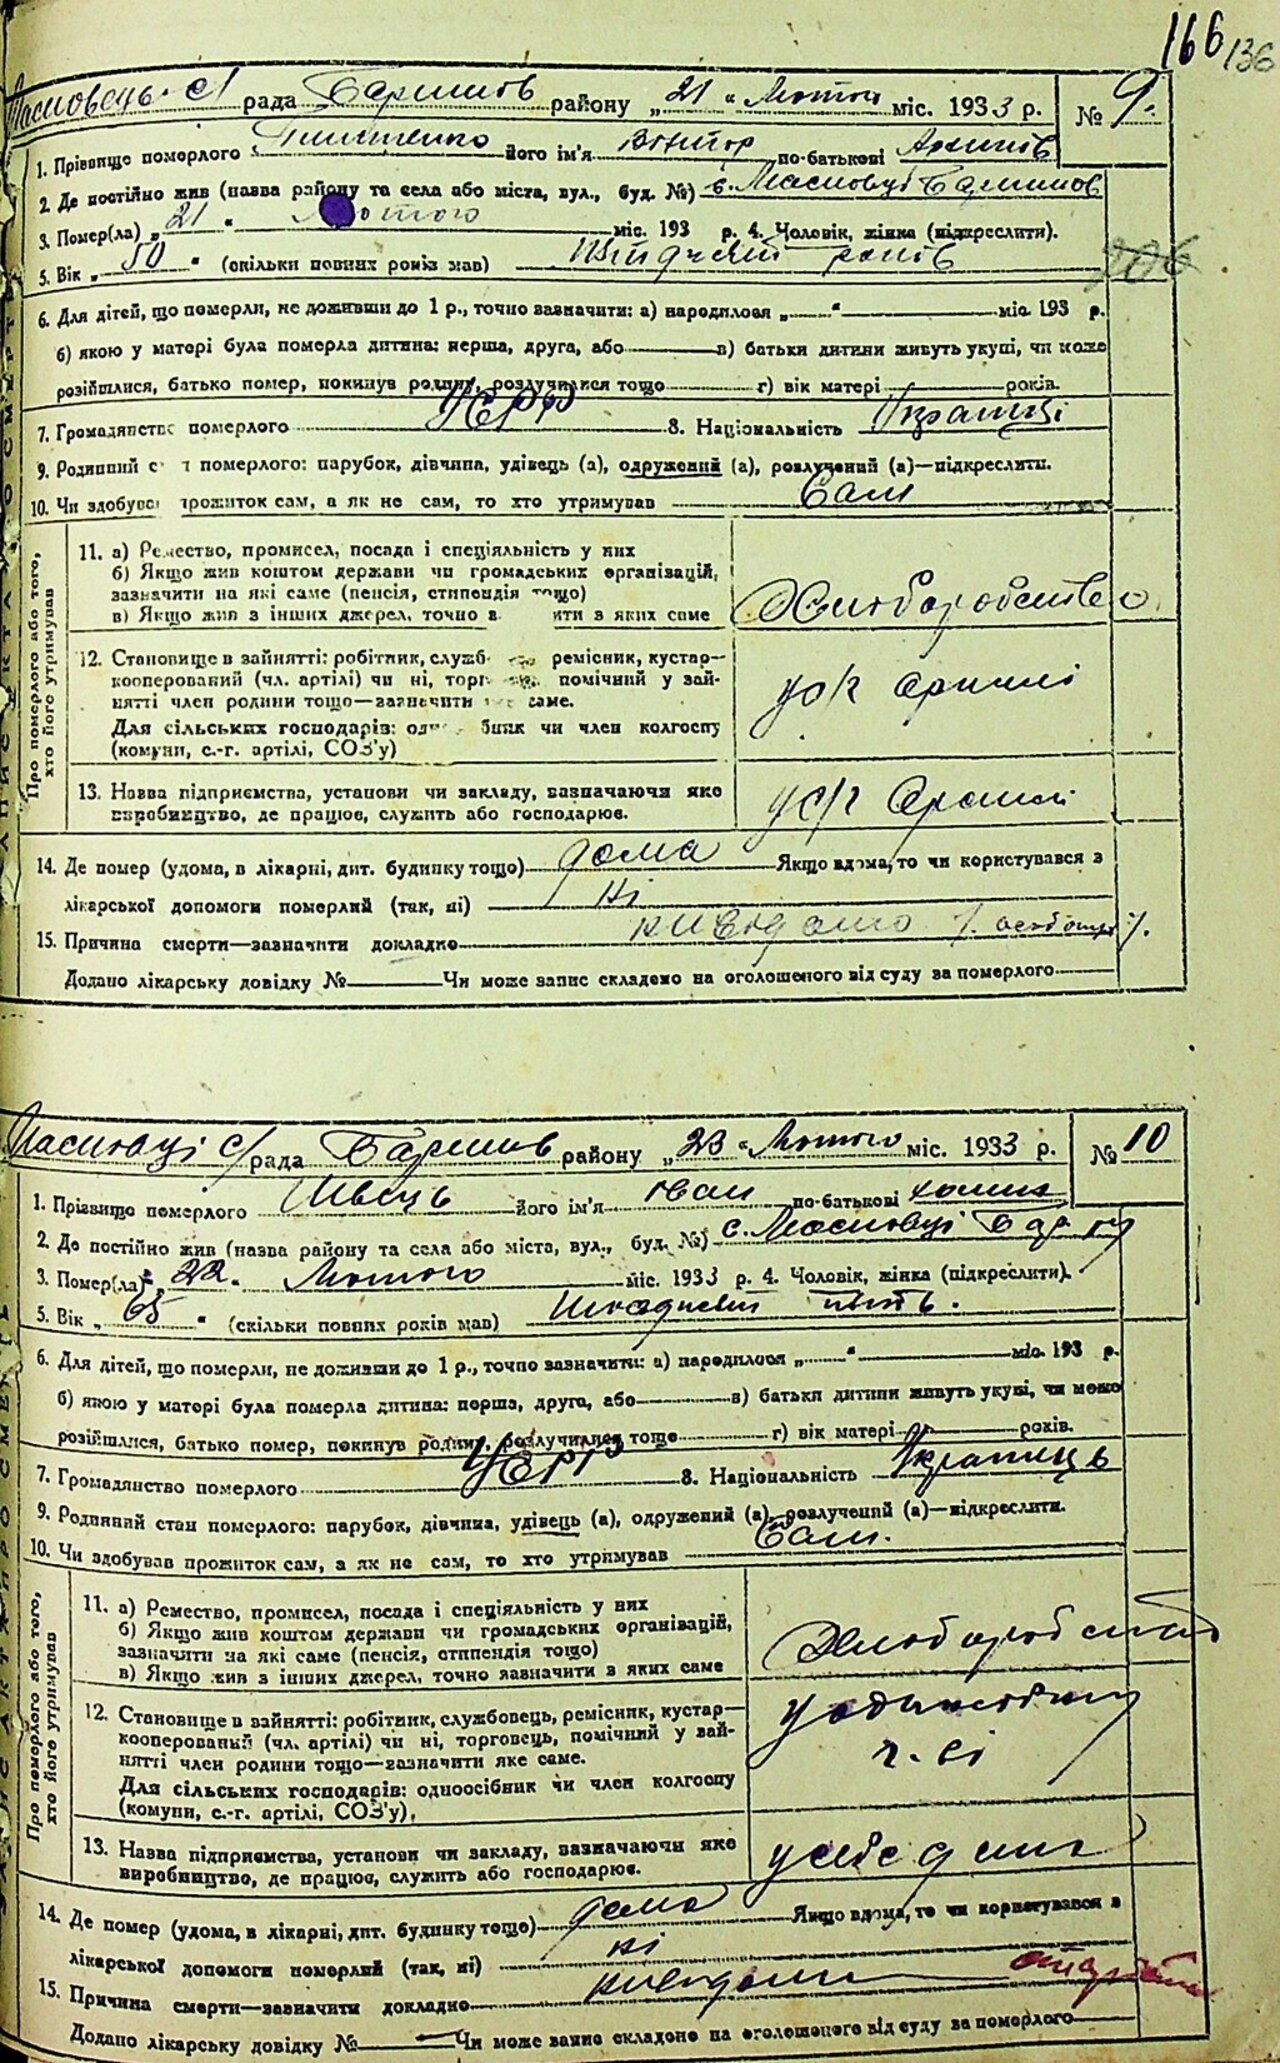 166 136
рада Баришів району „21“ Лютого міс. 1933 р. № 9.
1. Прізвище померлого його ім'я по-батькові
2. Де постійно жив (назва району та села або міста, вул., буд. №) с. Масковці Баришів
3. Помер(ла) „21“ Лютого міс. 193 р. 4. Чоловік, жінка (підкреслити).
5. Вік „50“ (скільки повних років мав) П'ятдесят років
206
6. Для дітей, що померли, не доживши до 1 р., точно зазначити: а) народилося „ “ міс. 193 р.
б) якою у матері була померла дитина: перша, друга, або в) батьки дитини живуть укупі, чи може
розійшлися, батько помер, покинув родину, розлучилися тощо г) вік матері років.
7. Громадянство померлого УСРР 8. Національність Українці
9. Родинний с померлого: парубок, дівчина, удівець (а), одружений (а), розлучений (а)—підкреслити.
10. Чи здобува прожиток сам, а як не сам, то хто утримував Сам
Про померлого або того, хто його утримував
11. а) Ремество, промисел, посада і спеціяльність у них
б) Якщо жив коштом держави чи громадських організацій,
зазначити на які саме (пенсія, стипендія тощо)
в) Якщо жив з інших джерел, точно в ити з яких саме
Хліборобство
12. Становище в зайнятті: робітник, службо ремісник, кустар—
кооперований (чл. артілі) чи ні, торг помічний у зай-
нятті член родини тощо—зазначити яке саме.
Для сільських господарів: одно бник чи член колгоспу
(комуни, с.-г. артілі, СОЗ'у)
13. Назва підприємства, установи чи закладу, зазначаючи яке
виробництво, де працює, служить або господарює.
14. Де помер (удома, в лікарні, дит. будинку тощо) дома Якщо вдома, то чи користувався з
лікарської допомоги померлий (так, ні) Ні
15. Причина смерти—зазначити докладно
Додано лікарську довідку № Чи може запис складено на оголошеного від суду за померлого
Масковці с/рада Баришів району „23“ Лютого міс. 1933 р. № 10
1. Прізвище померлого Швець його ім'я Іван по-батькові
2. Де постійно жив (назва району та села або міста, вул., буд. №) с. Масковці Бар. р-ну
3. Помер(ла) „22“ Лютого міс. 1933 р. 4. Чоловік, жінка (підкреслити).
5. Вік „65“ (скільки повних років мав)
6. Для дітей, що померли, не доживши до 1 р., точно зазначити: а) народилося „ “ міс. 193 р.
б) якою у матері була померла дитина: перша, друга, або в) батьки дитини живуть укупі, чи може
розійшлися, батько помер, покинув родину, розлучилися тощо г) вік матері років.
7. Громадянство померлого УСРР 8. Національність Українець
9. Родинний стан померлого: парубок, дівчина, удівець (а), одружений (а), розлучений (а)—підкреслити.
10. Чи здобував прожиток сам, а як не сам, то хто утримував Сам.
Про померлого або того, хто його утримував
11. а) Ремество, промисел, посада і спеціяльність у них
б) Якщо жив коштом держави чи громадських організацій,
зазначити на які саме (пенсія, стипендія тощо)
в) Якщо жив з інших джерел, точно зазначити з яких саме
12. Становище в зайнятті: робітник, службовець, ремісник, кустар—
кооперований (чл. артілі) чи ні, торговець, помічний у зай-
нятті член родини тощо—зазначити яке саме.
Для сільських господарів: одноосібник чи член колгоспу
(комуни, с.-г. артілі, СОЗ'у),
13. Назва підприємства, установи чи закладу, зазначаючи яке
виробництво, де працює, служить або господарює.
14. Де помер (удома, в лікарні, дит. будинку тощо) дома Якщо вдома, то чи користувався з
лікарської допомоги померлий (так, ні) ні
15. Причина смерти—зазначити докладно
Додано лікарську довідку № Чи може запис складено на оголошеного від суду за померлого